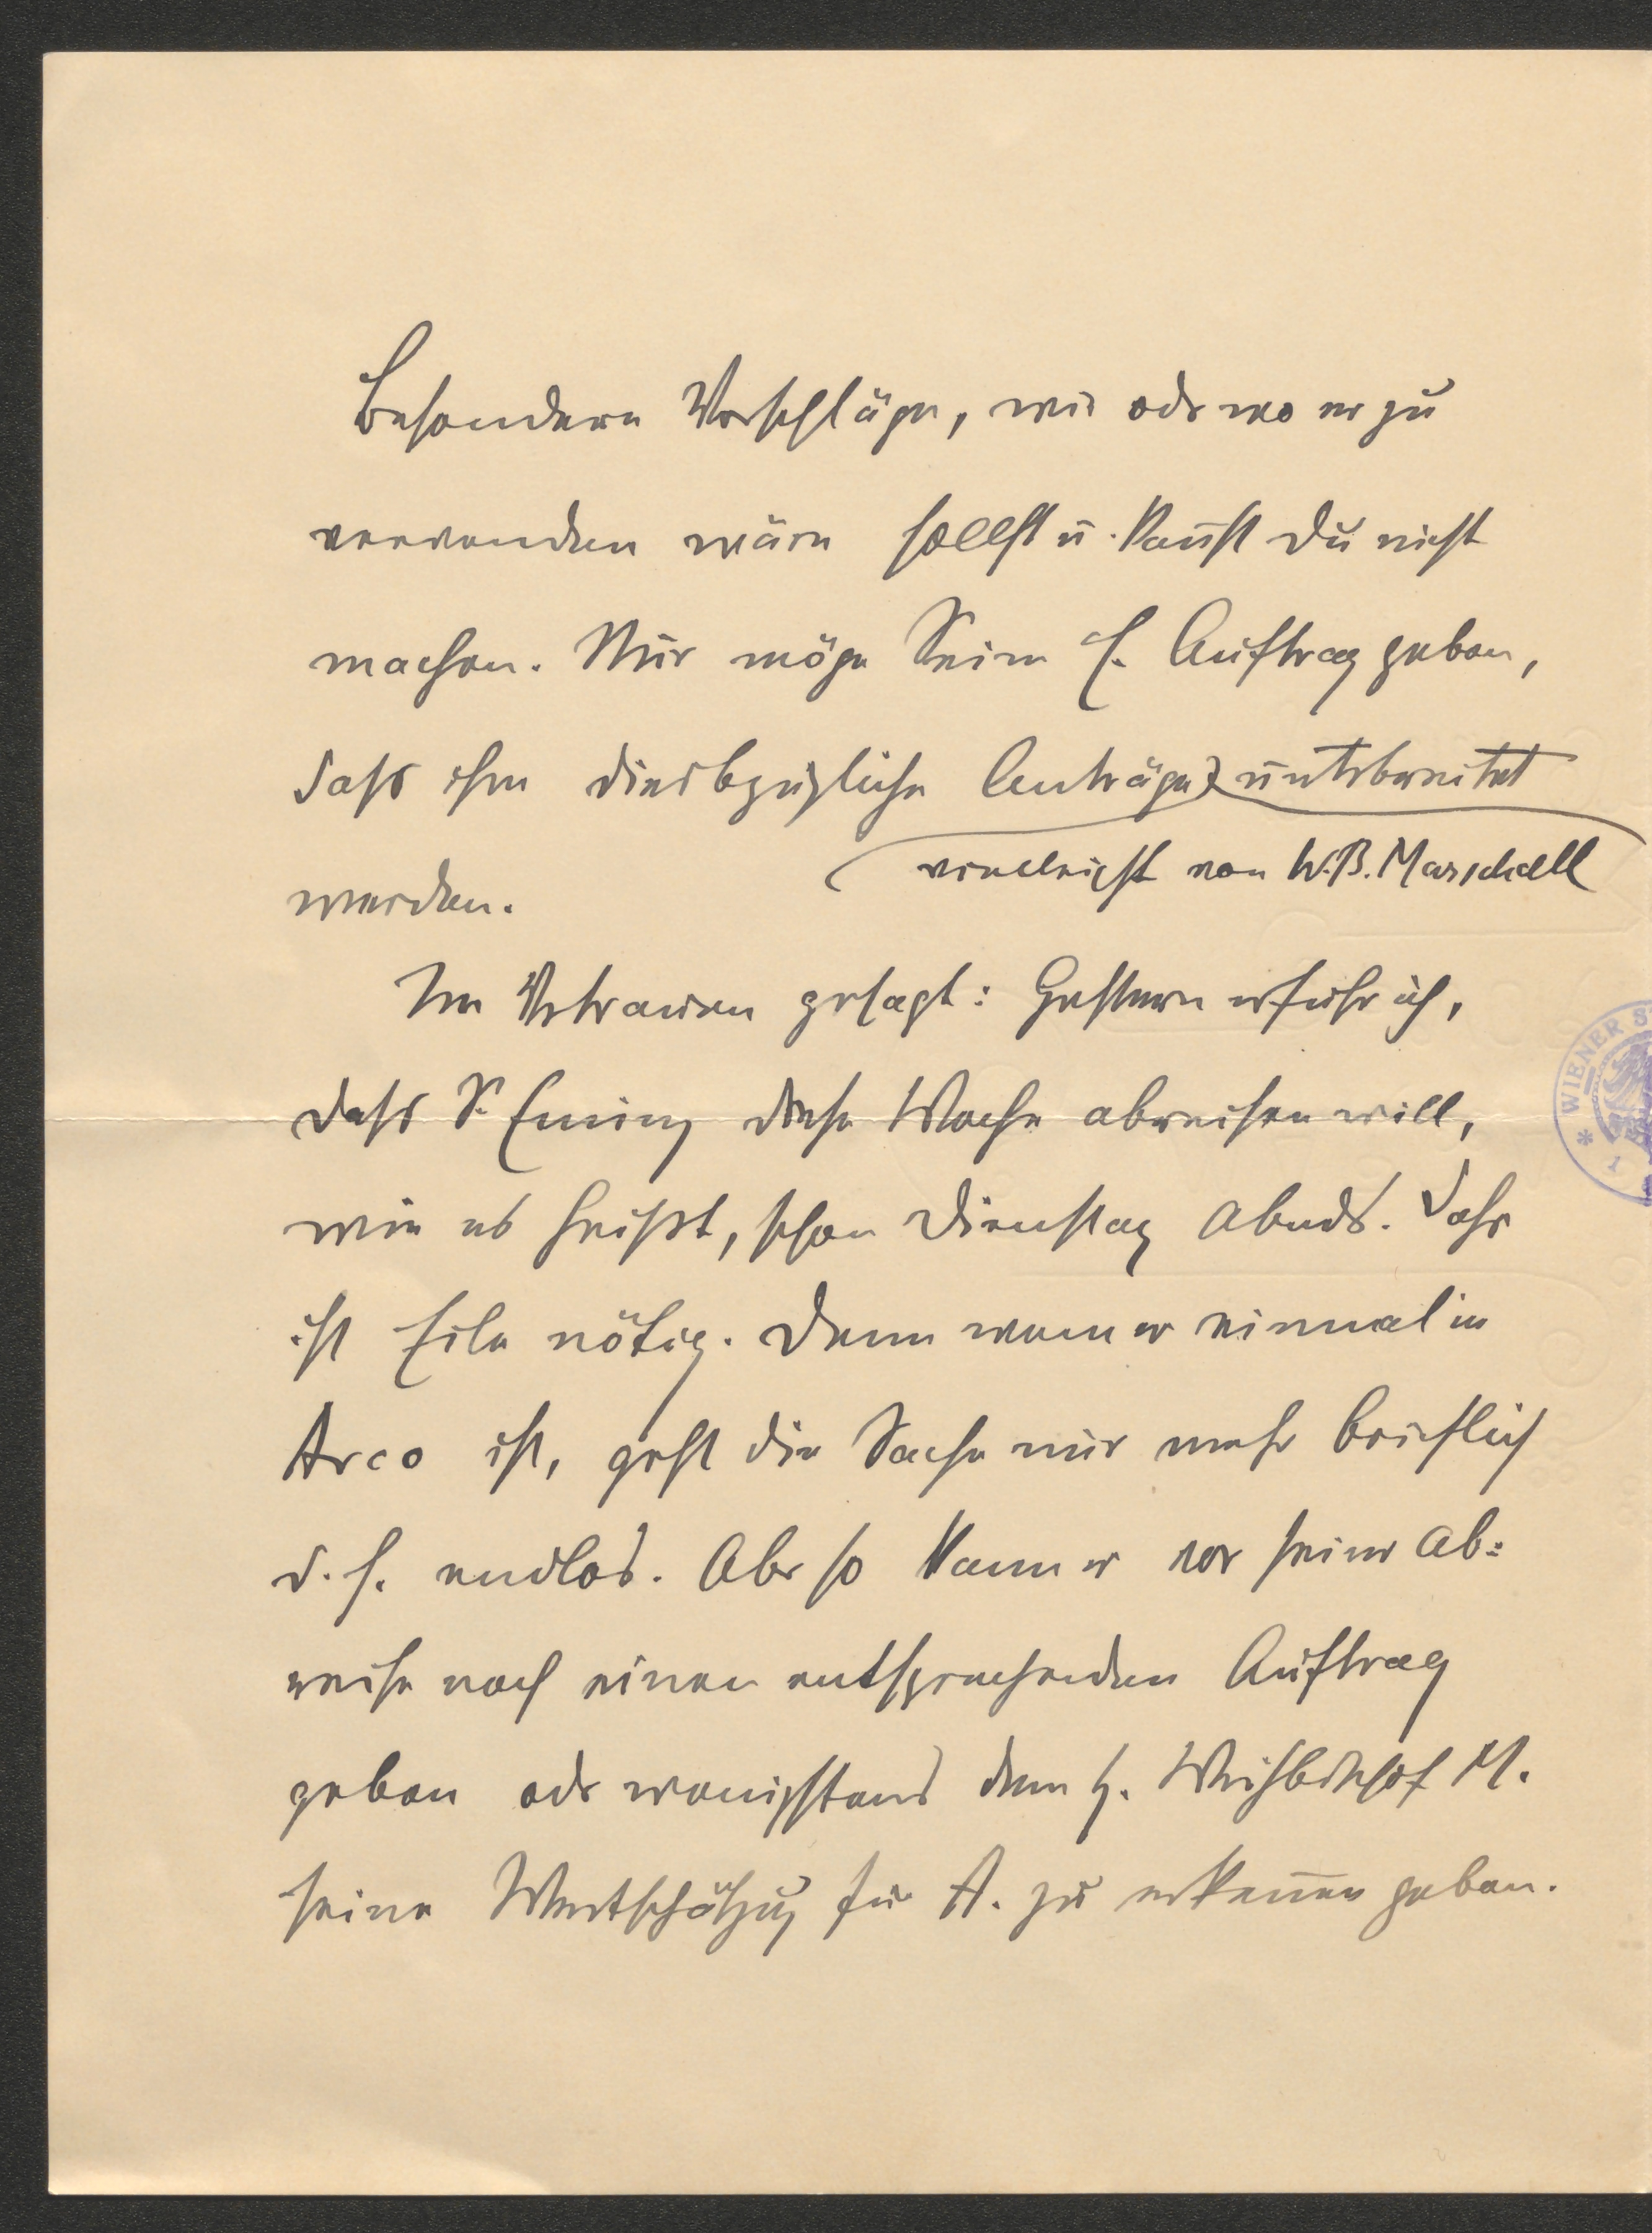 Besondere Vorschläge, wie oder wo er zu
verwenden wäre sollst u. kannst Du nicht
machen. Nur möge Seine E. Auftrag geben,
dass ihm diesbezügliche Anträge unterbreitet
vielleicht von W.B. Marschall
werden.
Im Vertrauen gesagt: Gestern erfuhr ich,
dass S. Eminz diese Woche abreisen will,
wie es heißt, schon Dienstag Abends. Daher
ist Eile nötig. Denn wenn er einmal in
Arco ist, geht die Sache nur mehr brieflich
d. h. endlos. Aber so kann er vor seiner Ab=
reise noch einen entsprechenden Auftrag
geben oder wenigstens dem H. Weihbischof M.
seine Wertschätzung für A. zu erkennen geben.
* WIENER S
1